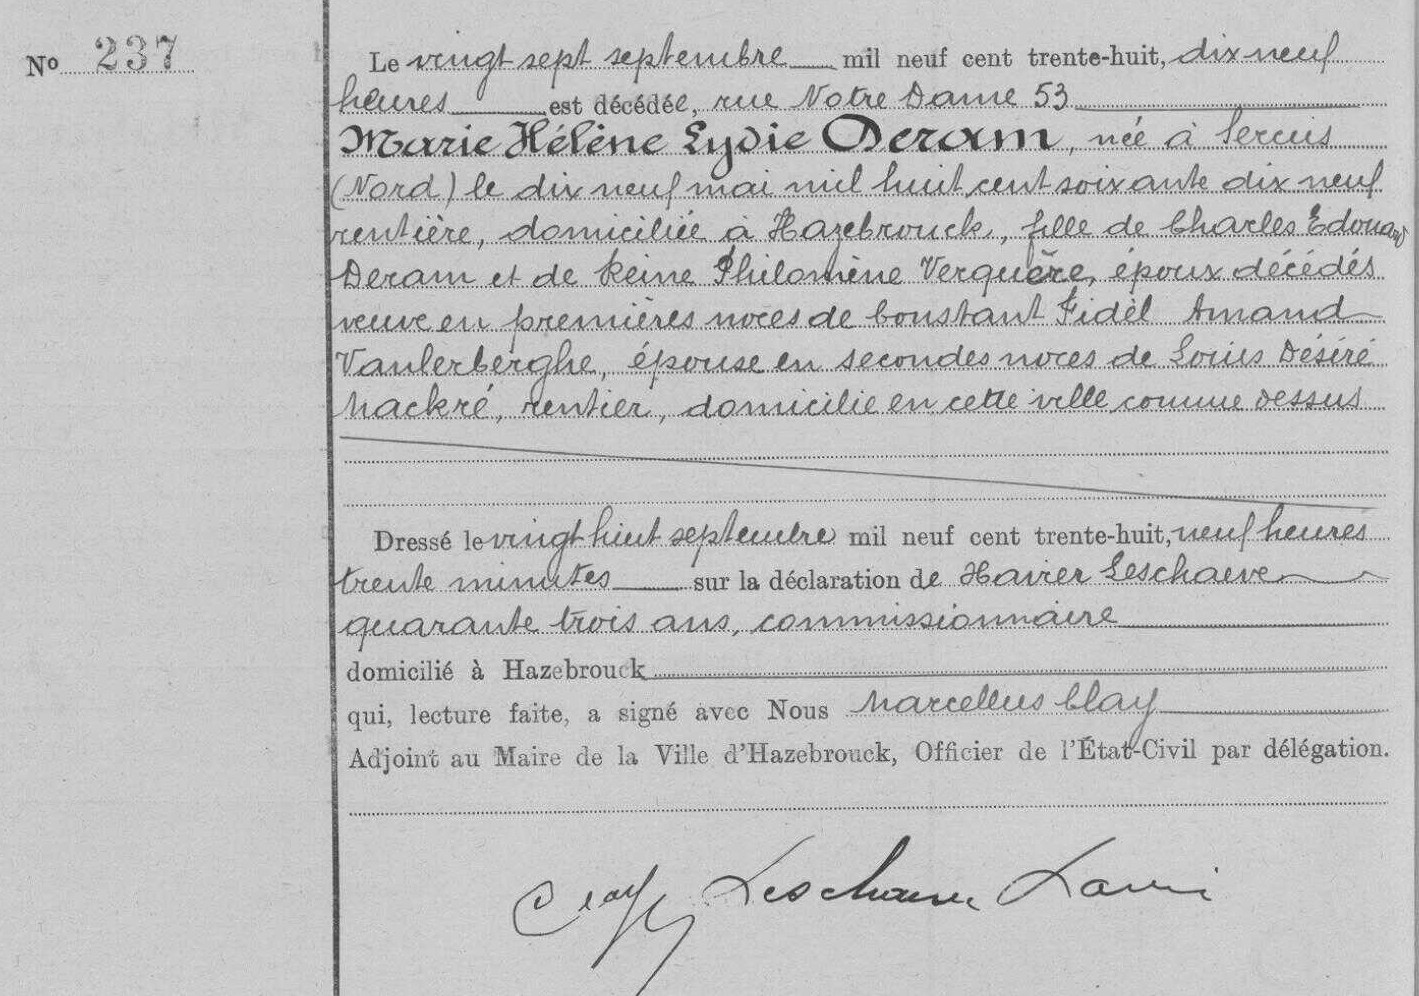 Nº 237
Le vingt sept septembre mil neuf cent trente-huit, dix-neuf
heures est décédée, rue Notre Dame 53
Marie Hélène Lydie Deram, née à Sercus
(Nord) le dix neuf mai mil huit cent soixante dix neuf
rentière, domiciliée à Hazebrouck, fille de Charles Edouard
Deram et de Reine Philomène Verquère, époux décédés
veuve en premières noces de Constant Fidèl Amand
Vanlerberghe, épouse en secondes noces de Louis Désiré
Mackré, rentier, domicilie en cette ville comme dessus
Dressé le vingt huit septembre mil neuf cent trente-huit, neuf heures
trente minutes sur la déclaration de Xavier Leschaeve
quarante trois ans, commissionnaire
domicilié à Hazebrouck
qui, lecture faite, a signé avec Nous Marcellus Clay
Adjoint au Maire de la Ville d'Hazebrouck, Officier de l'État-Civil par délégation.
Clay Leschaeve